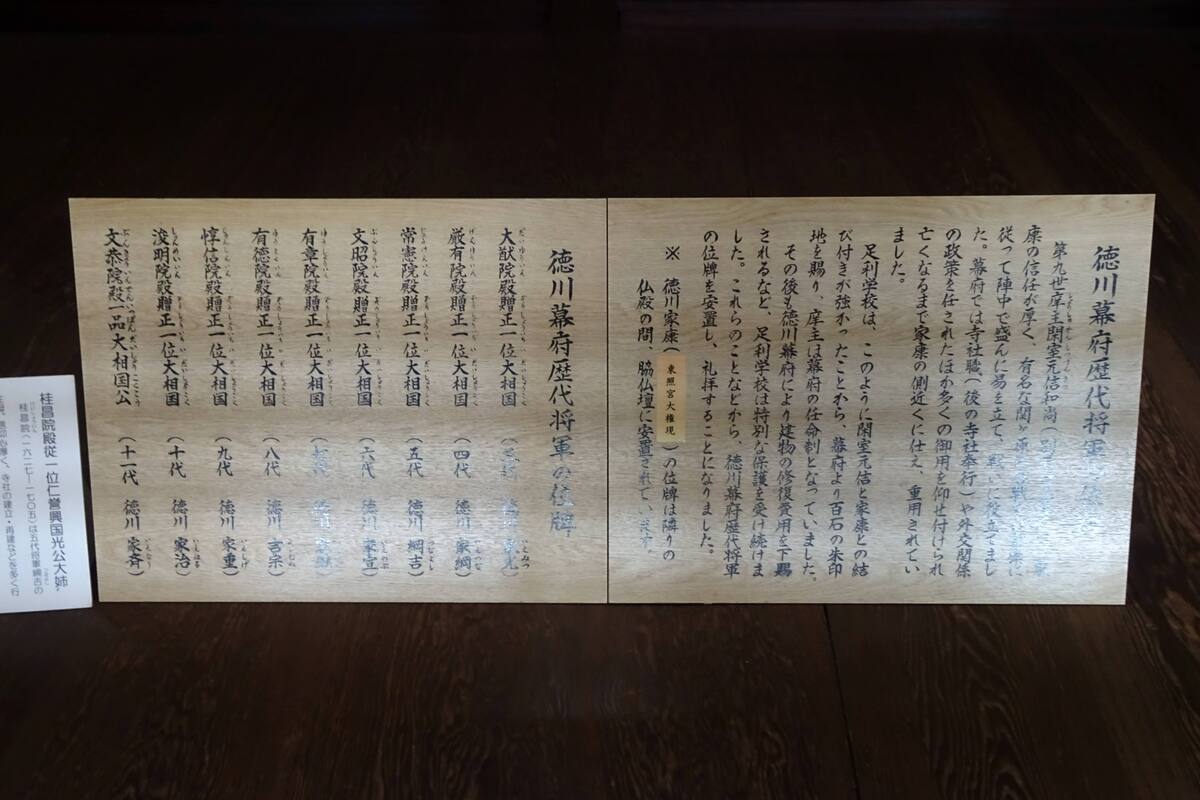 徳川幕府歴代将軍
第九世庠主閑室元佶和尚
康の信任が厚く、有名な関ヶ原
従って陣中で盛んに易を立て、戦いに役立てまし
た。幕府では寺社職(後の寺社奉行)や外交関係
の政策を任されたほか多くの御用を仰せ付けられ
亡くなるまで家康の側近くに仕え、重用されてい
ました。
足利学校は、このように閑室元佶と家康との結
び付きが強かったことから、幕府より百石の朱印
地を賜り、庠主は幕府の任命制となっていました。
その後も徳川幕府により建物の修復費用を下賜
されるなど、足利学校は特別な保護を受け続けま
した。これらのことなどから、徳川幕府歴代将軍
の位牌を安置し、礼拝することになりました。
※ 徳川家康(東照宮大権現)の位牌は隣りの
仏殿の間、脇仏壇に安置されています。
徳川幕府歴代将軍の位牌
大猷院殿贈正一位大相国
厳有院殿贈正一位大相国 (四代 徳川 家綱)
常憲院殿贈正一位大相国 (五代 徳川 綱吉)
文昭院殿贈正一位大相国 (六代 徳川 家宣)
有章院殿贈正一位大相国
有徳院殿贈正一位大相国 (八代 徳川 吉宗)
惇信院殿贈正一位大相国 (九代 徳川 家重)
浚明院殿贈正一位大相国 (十代 徳川 家治)
文恭院殿一品大相国公 (十一代 徳川 家斉)
桂昌院殿従一位仁誉興国光公大姉
桂昌院(一六二七〜一七〇五)は五代将軍綱吉の
寺社の建立・再建などを多く行